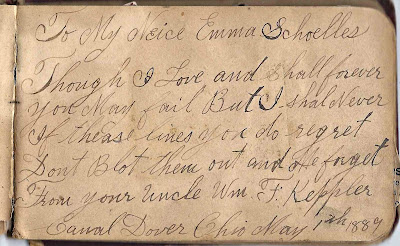 To My Neice Emma Schoelles
Though I Love and Shall forever
You May fail But I shal Never
If thease lines you do regret
Dont Blot them out and He forget
From your Uncle Wm. F. Keppler
Canal Dover Ohio May 12th 1889